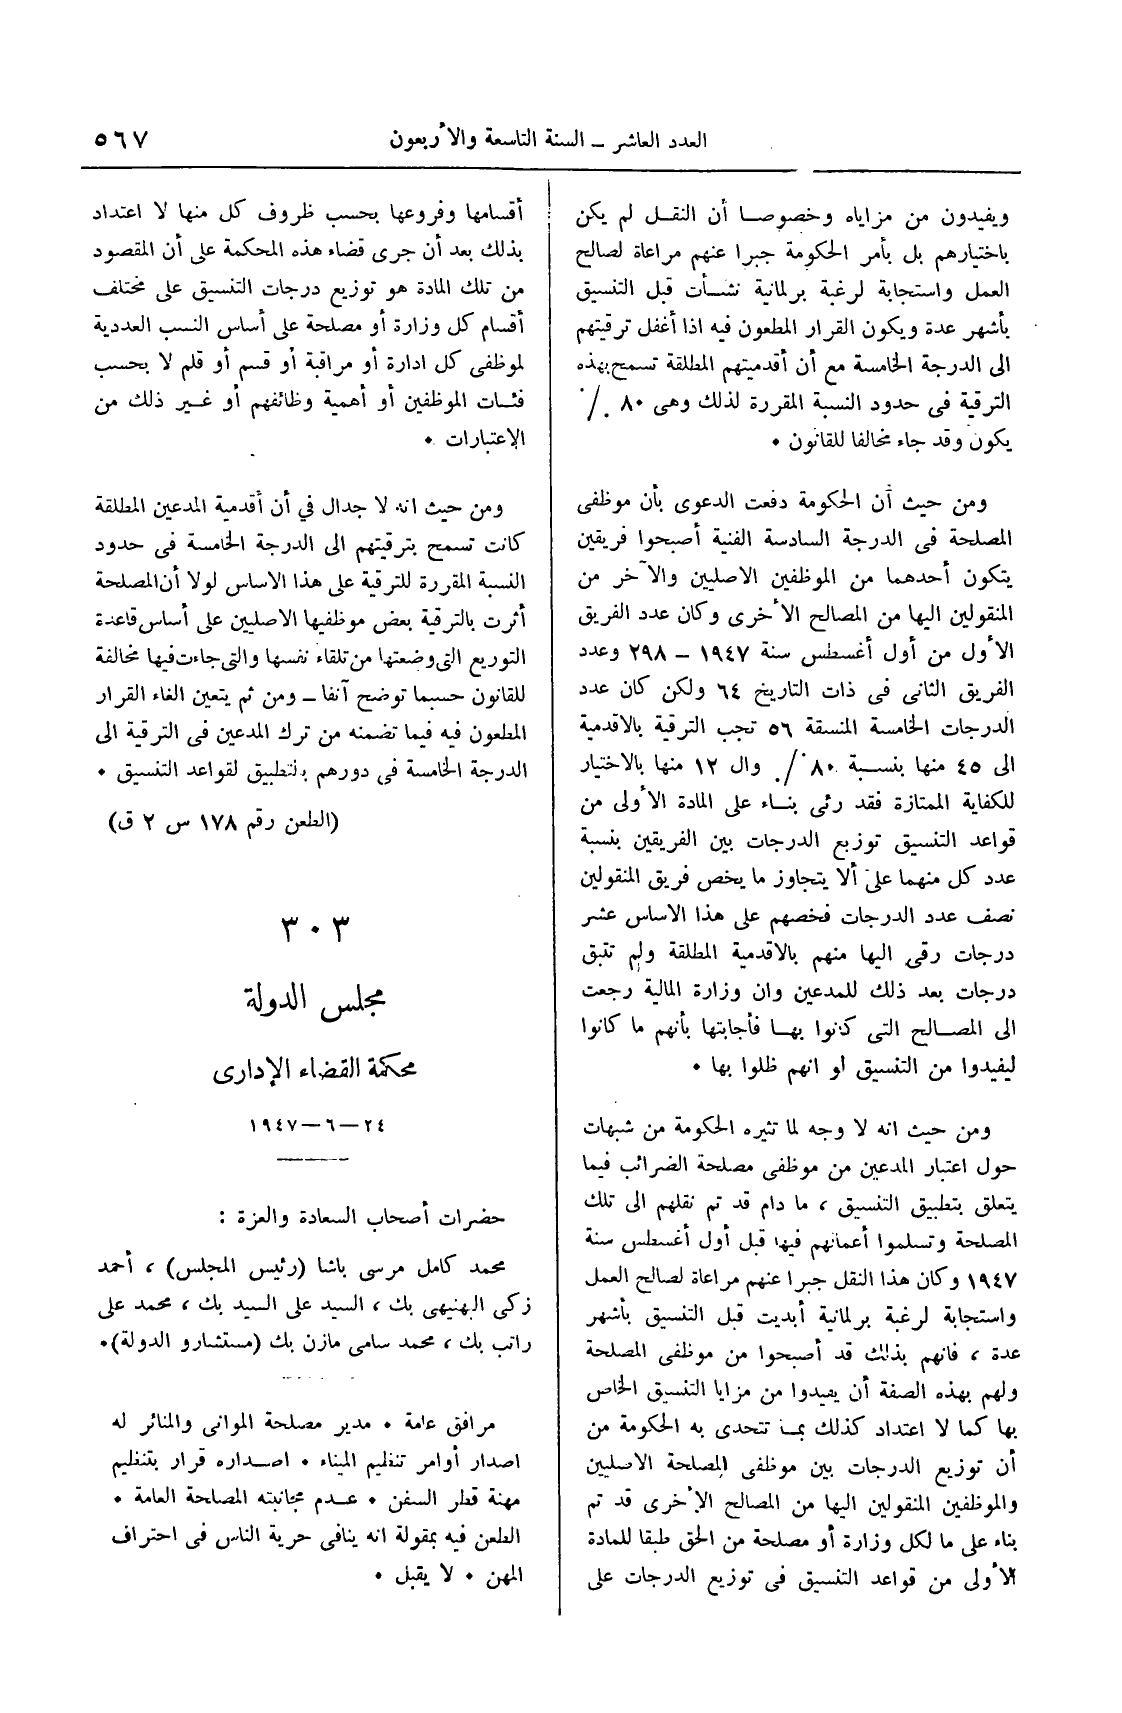 العدد العاشر ــ السنة التاسعة والأربعون
٥٦٧
ويفيدون من مزاياه وخصوصا أن النقل لم يكن
باختيارهم بل بأمر الحكومة جبرا عنهم مراعاة لصالح
العمل واستجابة لرغبة برلمانية نشأت قبل التنسيق
بأشهر عدة ويكون القرار المطعون فيه اذا أغفل ترقيتهم
الى الدرجة الخامسة مع أن أقدميتهم المطلقة تسمح بهذه
الترقية فى حدود النسبة المقررة لذلك وهى ٨٠ ٪
يكون وقد جاء مخالفا للقانون ٠
ومن حيث أن الحكومة دفعت الدعوى بأن موظفى
المصلحة فى الدرجة السادسة الفنية أصبحوا فريقين
يتكون أحدهما من الموظفين الاصليين والآخر من
المنقولين اليها من المصالح الأخرى وكان عدد الفريق
الأول من أول أغسطس سنة ١٩٤٧ ــ ٢٩٨ وعدد
الفريق الثانى فى ذات التاريخ ٦٤ ولكن كان عدد
الدرجات الخامسة المنسقة ٥٦ تجب الترقية بالاقدمية
الى ٤٥ منها بنسبة ٨٠ ٪ وال ١٢ منها بالاختيار
للكفاية الممتازة فقد رئى بناء على المادة الأولى من
قواعد التنسيق توزيع الدرجات بين الفريقين بنسبة
عدد كل منهما على ألا يتجاوز ما يخص فريق المنقولين
نصف عدد الدرجات فخصهم على هذا الاساس عشر
درجات رقى اليها منهم بالاقدمية المطلقة ولم تتبق
درجات بعد ذلك للمدعين وان وزارة المالية رجعت
الى المصالح التى كانوا بها فأجابتها بأنهم ما كانوا
ليفيدوا من التنسيق او انهم ظلوا بها ٠
ومن حيث انه لا وجه لما تثيره الحكومة من شبهات
حول اعتبار المدعين من موظفى مصلحة الضرائب فيما
يتعلق بتطبيق التنسيق ، ما دام قد تم نقلهم الى تلك
المصلحة وتسلموا أعمالهم فيها قبل أول أغسطس سنة
١٩٤٧ وكان هذا النقل جبرا عنهم مراعاة لصالح العمل
واستجابة لرغبة برلمانية أبديت قبل التنسيق بأشهر
عدة ، فانهم بذلك قد أصبحوا من موظفى المصلحة
ولهم بهذه الصفة أن يفيدوا من مزايا التنسيق الخاص
بها كما لا اعتداد كذلك بما تتحدى به الحكومة من
أن توزيع الدرجات بين موظفى المصلحة الاصليين
والموظفين المنقولين اليها من المصالح الأخرى قد تم
بناء على ما لكل وزارة أو مصلحة من الحق طبقا للمادة
الأولى من قواعد التنسيق فى توزيع الدرجات على
أقسامها وفروعها بحسب ظروف كل منها لا اعتداد
بذلك بعد أن جرى قضاء هذه المحكمة على أن المقصود
من تلك المادة هو توزيع درجات التنسيق على مختلف
أقسام كل وزارة أو مصلحة على أساس النسب العددية
لموظفى كل ادارة أو مراقبة أو قسم أو قلم لا بحسب
فئات الموظفين أو أهمية وظائفهم أو غير ذلك من
الاعتبارات ٠
ومن حيث انه لا جدال في أن أقدمية المدعين المطلقة
كانت تسمح بترقيتهم الى الدرجة الخامسة فى حدود
النسبة المقررة للترقية على هذا الاساس لولا أن المصلحة
أثرت بالترقية بعض موظفيها الاصليين على أساس قاعدة
التوريع التى وضعتها من تلقاء نفسها والتى جاءت فيها مخالفة
للقانون حسبما توضح آنفا ــ ومن ثم يتعين الغاء القرار
المطعون فيه فيما تضمنه من ترك المدعين فى الترقية الى
الدرجة الخامسة فى دورهم بالتطبيق لقواعد التنسيق ٠
(الطعن رقم ١٧٨ س ٢ ق)
٣٠٣
مجلس الدولة
محكمة القضاء الإدارى
٢٤ – ٦ – ١٩٤٧
حضرات أصحاب السعادة والعزة :
محمد كامل مرسى باشا (رئيس المجلس) ، أحمد
زكى الهنيهى بك ، السيد على السيد بك ، محمد على
راتب بك ، محمد سامى مازن بك (مستشارو الدولة)٠
مرافق عامة ٠ مدير مصلحة الموانى والمنائر له
اصدار أوامر تنظيم الميناء ٠ اصداره قرار بتنظيم
مهنة قطر السفن ٠ عدم مجانبته المصلحة العامة ٠
الطعن فيه بمقولة انه ينافى حرية الناس فى احتراف
المهن ٠ لا يقبل ٠